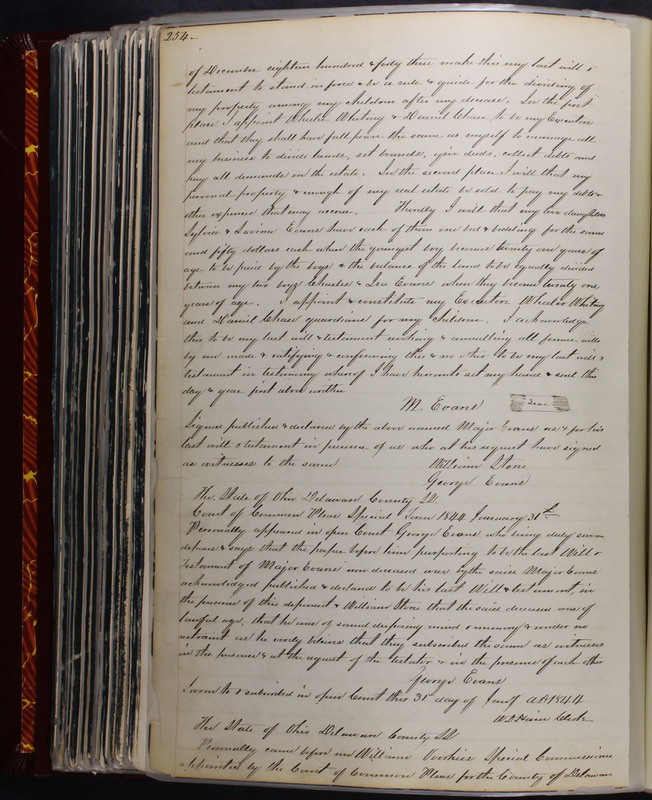 254.
of December eighteen hundred & forty three make this my last will &
testament to stand in force & be a rule & guide for the dividing of
my property among my children after my decease. In the first
place I appoint Wheeler Whitney & Daniel Chase to be my Executors
and that they shall have full power the same as myself to manage all
my business to divide lands, set bounds, give deeds, collect debts and
pay all demands on the estate. In the second place I will that my
personal property & enough of my real estate be sold to pay my debts &
other expenses that may accrue. Thirdly I will that my two daughters
Sylvia & Lavina Evans have each of them one bed & bedding for the same
and fifty dollars each when the youngest boy becomes twenty one years of
age to be paid by the boys & the balance of the land to be equally divided
between my two boys Charles & Ira Evans when they become twenty one
years of age. I appoint & constitute my Executors Wheeler Whitney
and Daniel Chase guardians for my children. I acknowledge
this to be my last will & testament revoking & annulling all former wills
by me made & ratifying & confirming this & no other to be my last will &
testament in testimony whereof I have hereunto set my hand & seal this
day & year first above written
M. Evans Seal
Signed published & declared by the above named Major Evans as & for his
last will & testament in presence of us who at his request have signed
as witnesses to the same
William Stone
George Evans
The State of Ohio Delaware County SS.
Court of Common Pleas Special Term 1844 January 31st
Personally appeared in open Court George Evans who being duly sworn
deposes & says that the paper before him purporting to be the last Will &
Testament of Major Evans now deceased was by the said Major Evans
acknowledged published & declared to be his last Will & testament, in
the presence of this deponent & William Stone that the said deceased was of
lawful age, that he was of sound disposing mind & memory & under no
restraint as he verily believes that they subscribed the same as witnesses
in the presence & at the request of the testator & in the presence of each other
George Evans
Sworn to & subscribed in open Court this 31st day of Jany AD 1844
Clerk
The State of Ohio Delaware County SS
Personally came before me William Voorhies Special Commissioner
appointed by the Court of Common Pleas for the County of Delaware